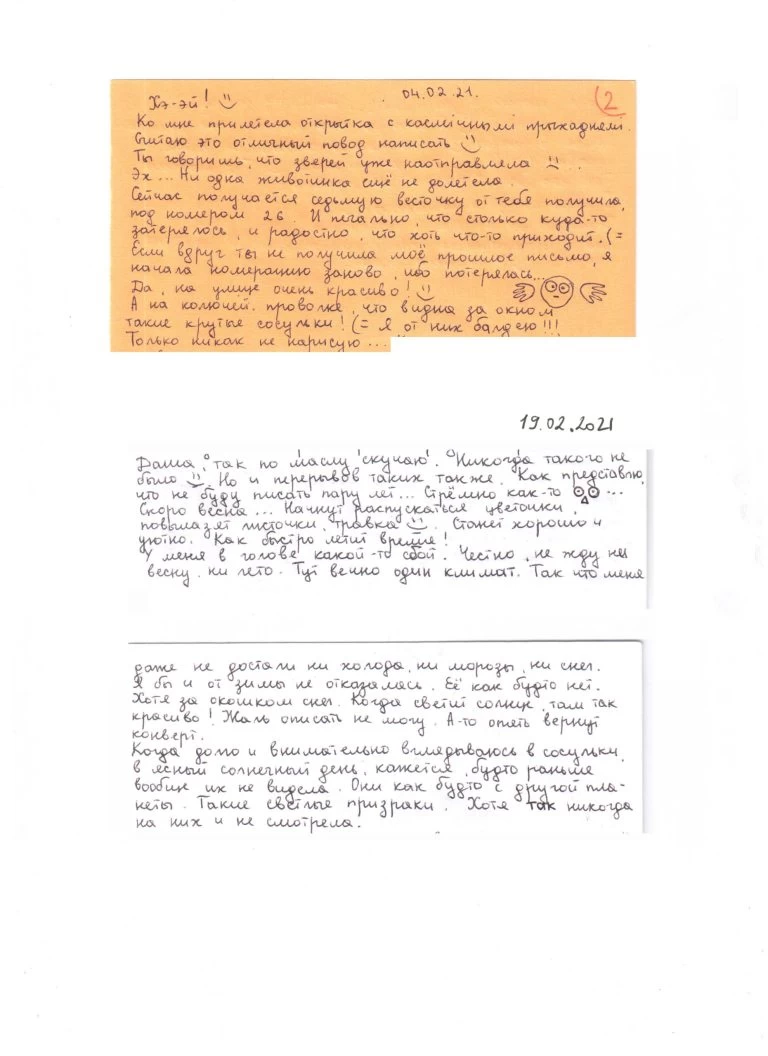 04.02.21.
2
Хэ-эй!
Ко мне прилетела открытка с касмічнымі прыхаднямі.
Считаю это отличный повод написать
Ты говоришь, что зверей уже наотправляла ...
Эх... Ни одна животинка ещё не долетела.
Сейчас получается седьмую весточку от тебя получила,
под номером 26. И печально, что столько куда-то
затерялось, и радостно, что хоть что-то приходит. (=
Если вдруг ты не получила моё прошлое письмо, я
начала нумерацию заново, ибо потерялась...
Да, на улице очень красиво!
А на колючей проволке, что видна за окном
такие крутые сосульки! (= Я от них балдею!!!
Только никак не нарисую...
19.02.2021
Даша, так по маслу скучаю. Никогда такого не
было. Но и перерывов таких также. Как представлю,
что не буду писать пару лет... Стрёмно как-то ...
Скоро весна... Начнут распускаться цветочки,
повылазят листочки, травка. Станет хорошо и
уютно. Как быстро летит время!
У меня в голове какой-то сбой. Честно, не жду ни
весну, ни лето. Тут вечно один климат. Так что меня
даже не достали ни холода, ни морозы, ни снег.
Я бы и от зимы не отказалась. Её как будто нет.
Хотя за окошком снег. Когда светит солнце, там так
красиво! Жаль описать не могу. А-то опять вернут
конверт.
Когда долго и внимательно вглядываюсь в сосульки,
в ясный солнечный день, кажется, будто раньше
вообще их не видела. Они как будто с другой пла-
неты. Такие светлые призраки. Хотя так никогда
на них и не смотрела.